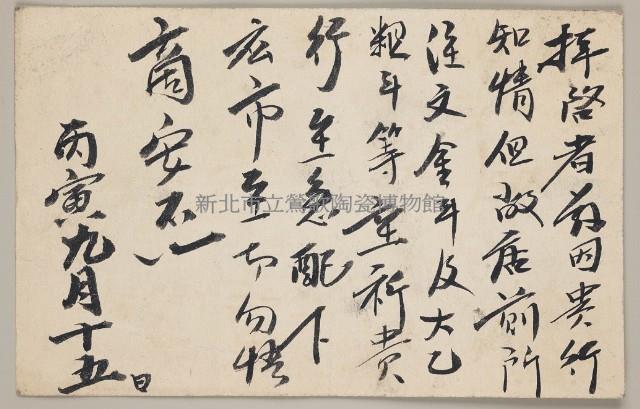 拜啓者前因貴行
知情但敝店前所
注文金斗及大乙
粗斗等重祈貴
行至急配下
宏市至切勿悮
商安不一
丙寅九月十五日
新北市立鶯歌陶瓷博物館